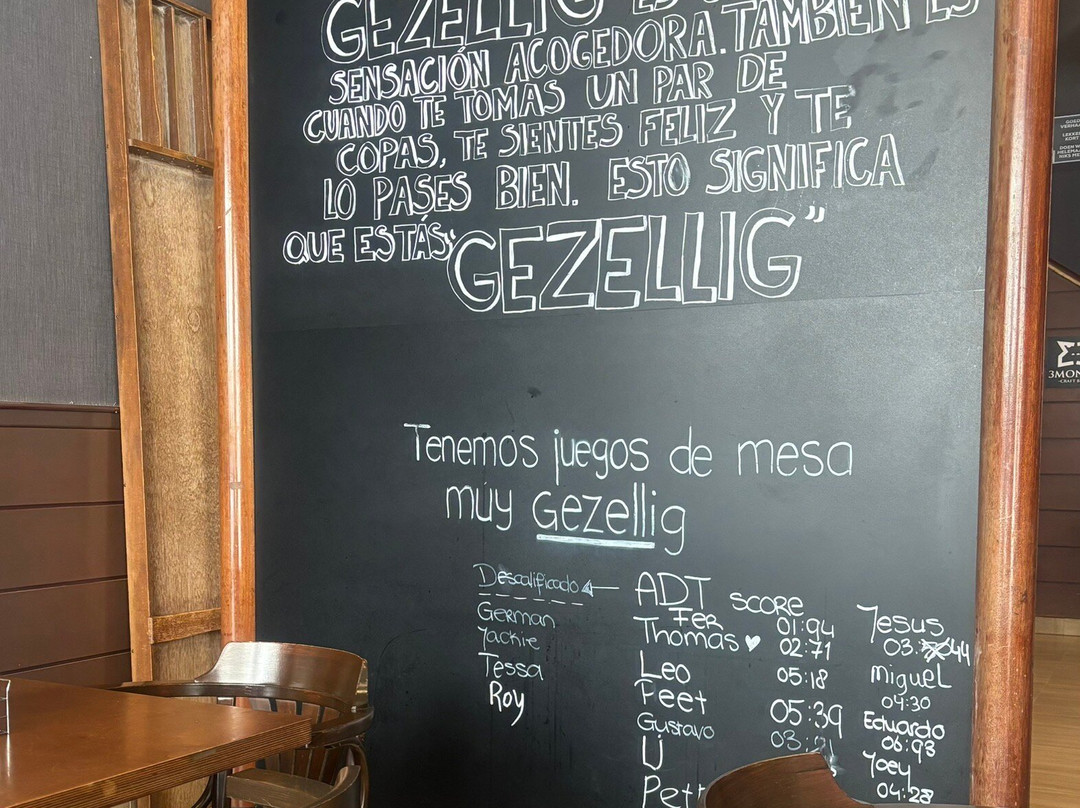 GEZELLIG ES
SENSACIÓN ACOGEDORA. TAMBIÉN ES
CUANDO TE TOMAS UN PAR DE
COPAS, TE SIENTES FELIZ Y TE
LO PASES BIEN. ESTO SIGNIFICA
QUE ESTÁS "GEZELLIG"
Tenemos juegos de mesa
muy Gezellig
Descalificado
German
Jackie
Tessa
Roy
ADT SCORE
Fer 01:94
Thomas ♥ 02:71
Leo 05:18
Peet 05:39
Gustavo
U
Jesus
Miguel
04:30
Eduardo
06:93
Joey
04:28
3MON